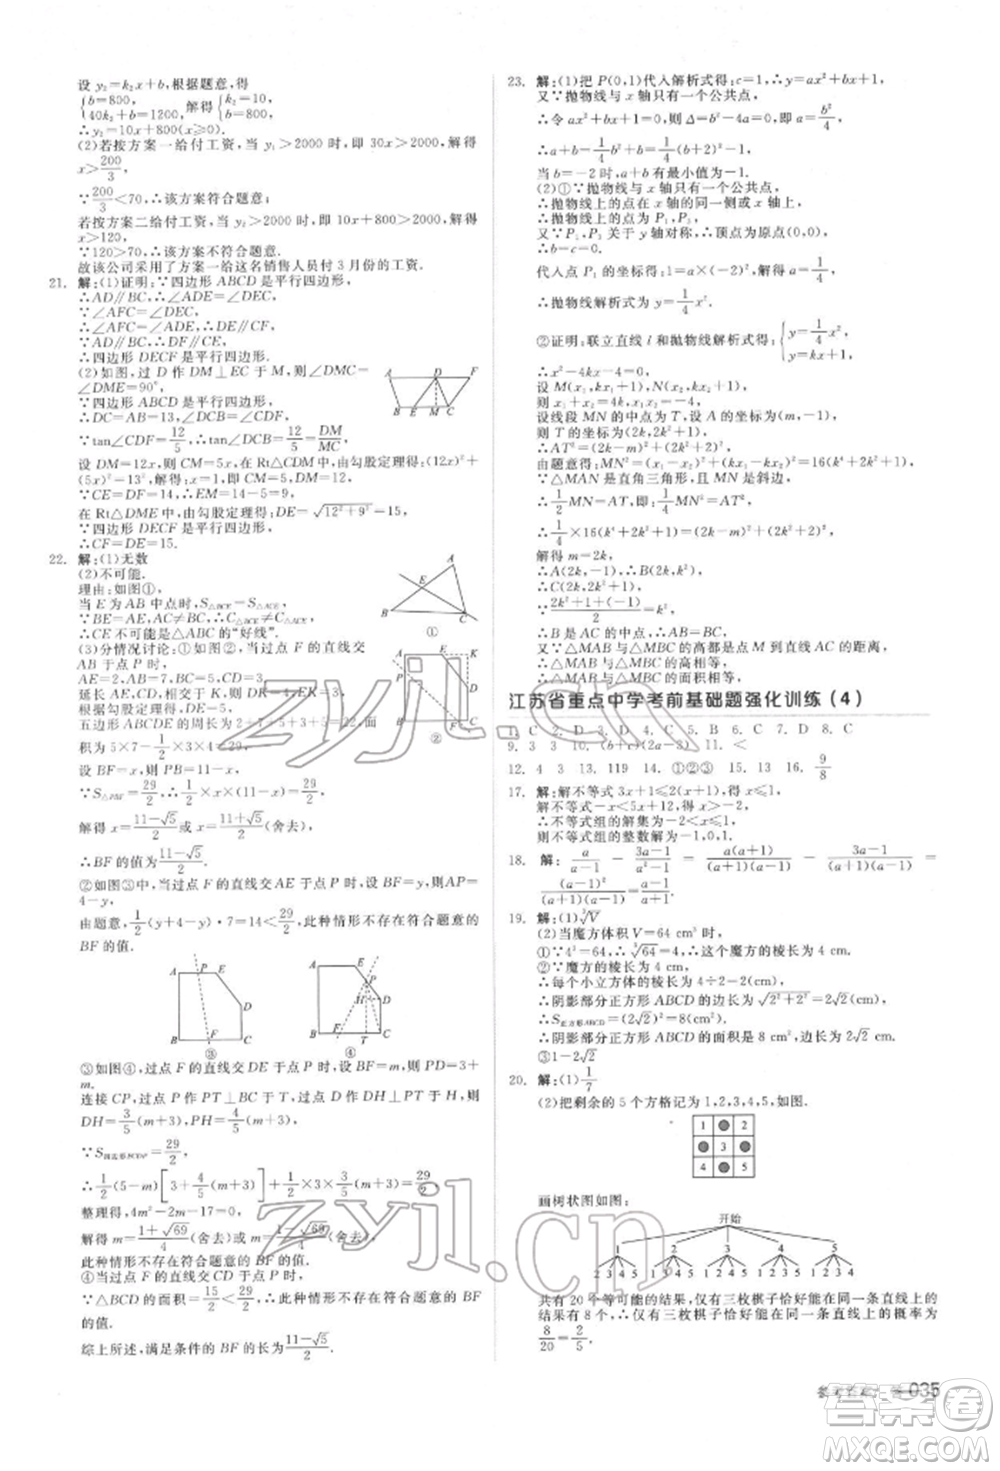 设 y₂=k₂x+b,根据题意,得
{b=800, 40k₂+b=1200, 解得{k₂=10, b=800,
∴y₂=10x+800(x≥0).
(2)若按方案一给付工资,当 y₁>2000 时,即 30x>2000,解得
x>200/3,
∵200/3<70,∴该方案符合题意;
若按方案二给付工资,当 y₂>2000 时,即 10x+800>2000,解得
x>120,
∵120>70,∴该方案不符合题意.
故该公司采用了方案一给这名销售人员付 3 月份的工资.
21. 解:(1)证明:∵四边形 ABCD 是平行四边形,
∴AD∥BC,∴∠ADE=∠DEC,
∵∠AFC=∠DEC,
∴∠AFC=∠ADE,∴DE∥CF,
∴四边形 DECF 是平行四边形.
(2)如图,过 D 作 DM⊥EC 于 M,则∠DMC=
∠DME=90°,
∵四边形 ABCD 是平行四边形,
∴DC=AB=13,∠DCB=∠CBF,
∵tan∠CBF=12/5,∴tan∠DCB=12/5=DM/MC,
设 DM=12x,则 CM=5x,在 Rt△DMC 中,由勾股定理得:(12x)²+
(5x)²=13²,解得:x=1,即 CM=5,DM=12,
∵CE=14,∴EM=14-5=9,
在 Rt△DME 中,由勾股定理得:DE=√(12²+9²)=15,
∵四边形 DECF 是平行四边形,
∴CF=DE=15.
A D F
B E M C
22. 解:(1)无数
(2)不可能.
理由:如图①,
当 E 为 AB 中点时,S△BCE=S△ACE,
∵BE=AE,BC≠AC,∴C△BCE≠C△ACE,
∴CE 不可能是△ABC 的“好线”.
(3)分情况讨论:①如图②,当过点 F 的直线交
AB 于点 P 时,
延长
五边形 ABCDE 的周长为 7+2+5+3+5=22,
积为 5×7-1/2×3×4=29,
设 BF=x,则 PB=11-x,
∵S△PBF=29/2,∴1/2×x·(11-x)=29/2,
解得 x=(11-√5)/2或 x=(11+√5)/2(舍去),
∴BF 的值为(11-√5)/2.
A E B C ①
②
②如图③中,当过点 F 的直线交 AE 于点 P 时,设 BF=y,则AP=
4-y,
由题意,1/2(y+4-y)·7=14≠29/2,∴此种情形不存在符合题意的
BF 的值.
A P E D B F C ③
A E P H D B T C ④
③如图④,当过点 F 的直线交 DE 于点 P 时,设 BF=m,则 PD=3+
m.
连接 CP,过点 P 作 PT⊥BC 于 T,过点 D 作 DH⊥PT 于 H,则
DH=3/5(m+3),PH=4/5(m+3),
∵S四边形DCFP=29/2,
∴1/2(5-m)[3+4/5(m+3)]+1/2×3×3/5(m+3)=29/2,
整理得,4m²-2m-17=0,
解得 m=(1+√69)/4(舍去)或 m=(1-√69)/4(舍去),
此种情形不存在符合题意的 BF 的值.
④当过点 F 的直线交 CD 于点 P 时,
∵△BCD 的面积=15/2<29/2,∴此种情形不存在符合题意的 BF
的值.
综上所述,满足条件的 BF 的长为(11-√5)/2.
23. 解:(1)把 P(0,1)代入解析式得:c=1,∴y=ax²+bx+1,
又∵抛物线与 x 轴只有一个公共点,
∴令 ax²+bx+1=0,则 Δ=b²-4a=0,即 a=b²/4,
∴a+b=1/4b²+b=1/4(b+2)²-1,
当 b=-2 时,a+b 有最小值为-1.
(2)①∵抛物线与 x 轴只有一个公共点,
∴抛物线上的点在 x 轴的同一侧或 x 轴上,
∴抛物线上的点为 P₁,P₃,
又∵P₁,P₃ 关于 y 轴对称,
∴顶点为原点(0,0),
代入点 P₁ 的坐标得,a=1/4,
∴抛物线解析式为 y=1/4x².
②证明:联立直线 l 和抛物线解析式得{y=1/4x², y=kx+1,
∴x²-4kx-4=0,
设 M(x₁,kx₁+1),N(x₂,kx₂+1),
则 x₁+x₂=4k,x₁x₂=-4,
设线段 MN 的中点为 T,设 A 的坐标为(m,-1),
则 T 的坐标为(2k,2k²+1),
∴AT²=(2k-m)²+(2k²+2)²,
由题意得:MN²=(x₁-x₂)²+k²(x₁-x₂)²=16(k²+1)²,
∵△MAN 是直角三角形,且 MN 是斜边,
∴1/2MN=AT,即:1/4MN²=AT²,
∴1/4×16(k²+1)²=(2k-m)²+(2k²+2)²,
解得 m=2k,
∴A(2k,-1),
∴B(2k,k²),
∴C(2k,2k²+1),
∵(2k²+1+(-1))/2=k²,
∴B 是 AC 的中点,∴AB=BC,
又∵△MAB 与△MBC 的高都是点 M 到直线 AC 的距离,
∴△MAB 与△MBC 的高相等,
∴△MAB 与△MBC 的面积相等.
江苏省重点中学考前基础题强化训练(4)
1. C 2. D 3. D 4. B 5. C 6. C 7. D 8. C
9. 3 10. (b+c)(2a-3) 11. <
12. 4 3 13. 119 14. ①②③ 15. 13 16. 9/8
17. 解:解不等式 3x+1≤2(x+1),得 x≤1,
解不等式-x<5x+12,得 x>-2,
∴不等式组的解集为-2<x≤1,
则不等式组的整数解为-1,0,1.
18. 解: a/(a-1) - (3a-1)/(a²-1) = a(a+1)/((a+1)(a-1)) - (3a-1)/((a+1)(a-1)) =
(a-1)²/((a+1)(a-1))=(a-1)/(a+1).
19. 解:(1)∛V
(2)当魔方体积 V=64 cm³ 时,
①∵4³=64,∴∛64=4,∴这个魔方的棱长为 4 cm.
②∵魔方的棱长为 4 cm,
∴每个小立方体的棱长为 4÷2=2(cm),
∴阴影部分正方形 ABCD 的边长为√(2²+2²)=2√2(cm),
∴S正方形ABCD=(2√2)²=8(cm²),
∴阴影部分正方形 ABCD 的面积是 8 cm²,边长为 2√2 cm.
③-1-2√2
20. 解:(1)1/7
(2)把剩余的 5 个方格记为 1,2,3,4,5,如图.
1 2
3
4 5
画树状图如图:
开始
1 2 3 4 5
2 3 4 5 1 3 4 5 1 2 4 5 1 2 3 5 1 2 3 4
共有 20 个等可能的结果,仅有三枚棋子恰好能在同一条直线上的
结果有 8 个,∴仅有三枚棋子恰好能在同一条直线上的概率为
8/20=2/5.
035
zyjl.cn
zyjl.cn
答案圈
MXQE.COM